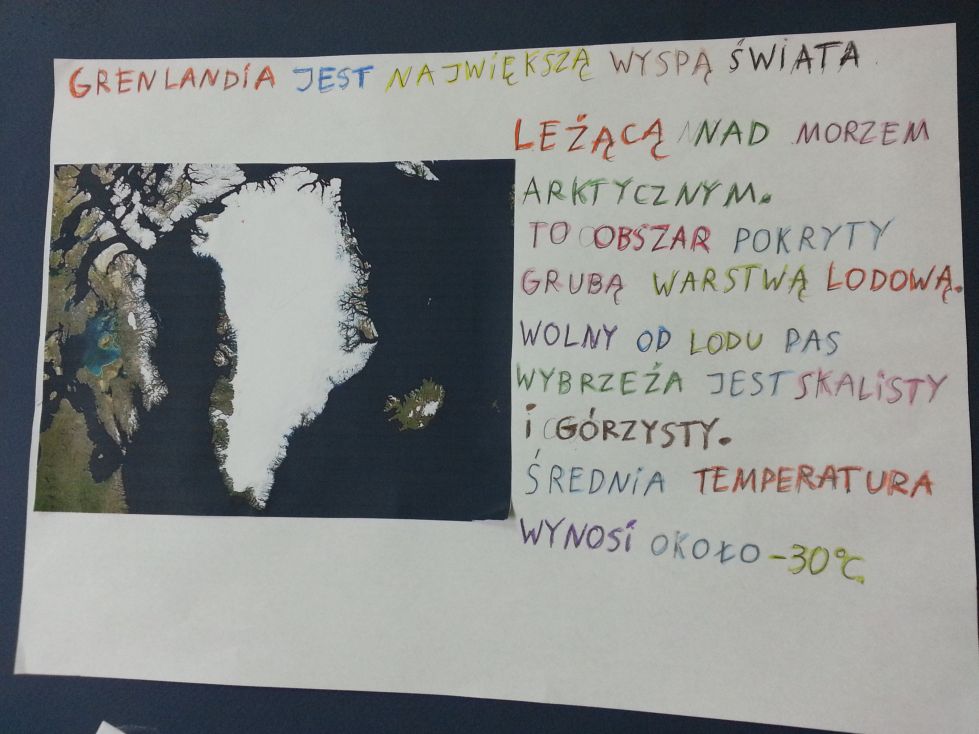 GRENLANDIA JEST NAJWIĘKSZĄ WYSPĄ ŚWIATA
LEŻĄCĄ NAD MORZEM
ARKTYCZNYM.
TO OBSZAR POKRYTY
GRUBĄ WARSTWĄ LODOWĄ.
WOLNY OD LODU PAS
WYBRZEŻA JEST SKALISTY
i GÓRZYSTY.
ŚREDNIA TEMPERATURA
WYNOSI OKOŁO -30°C